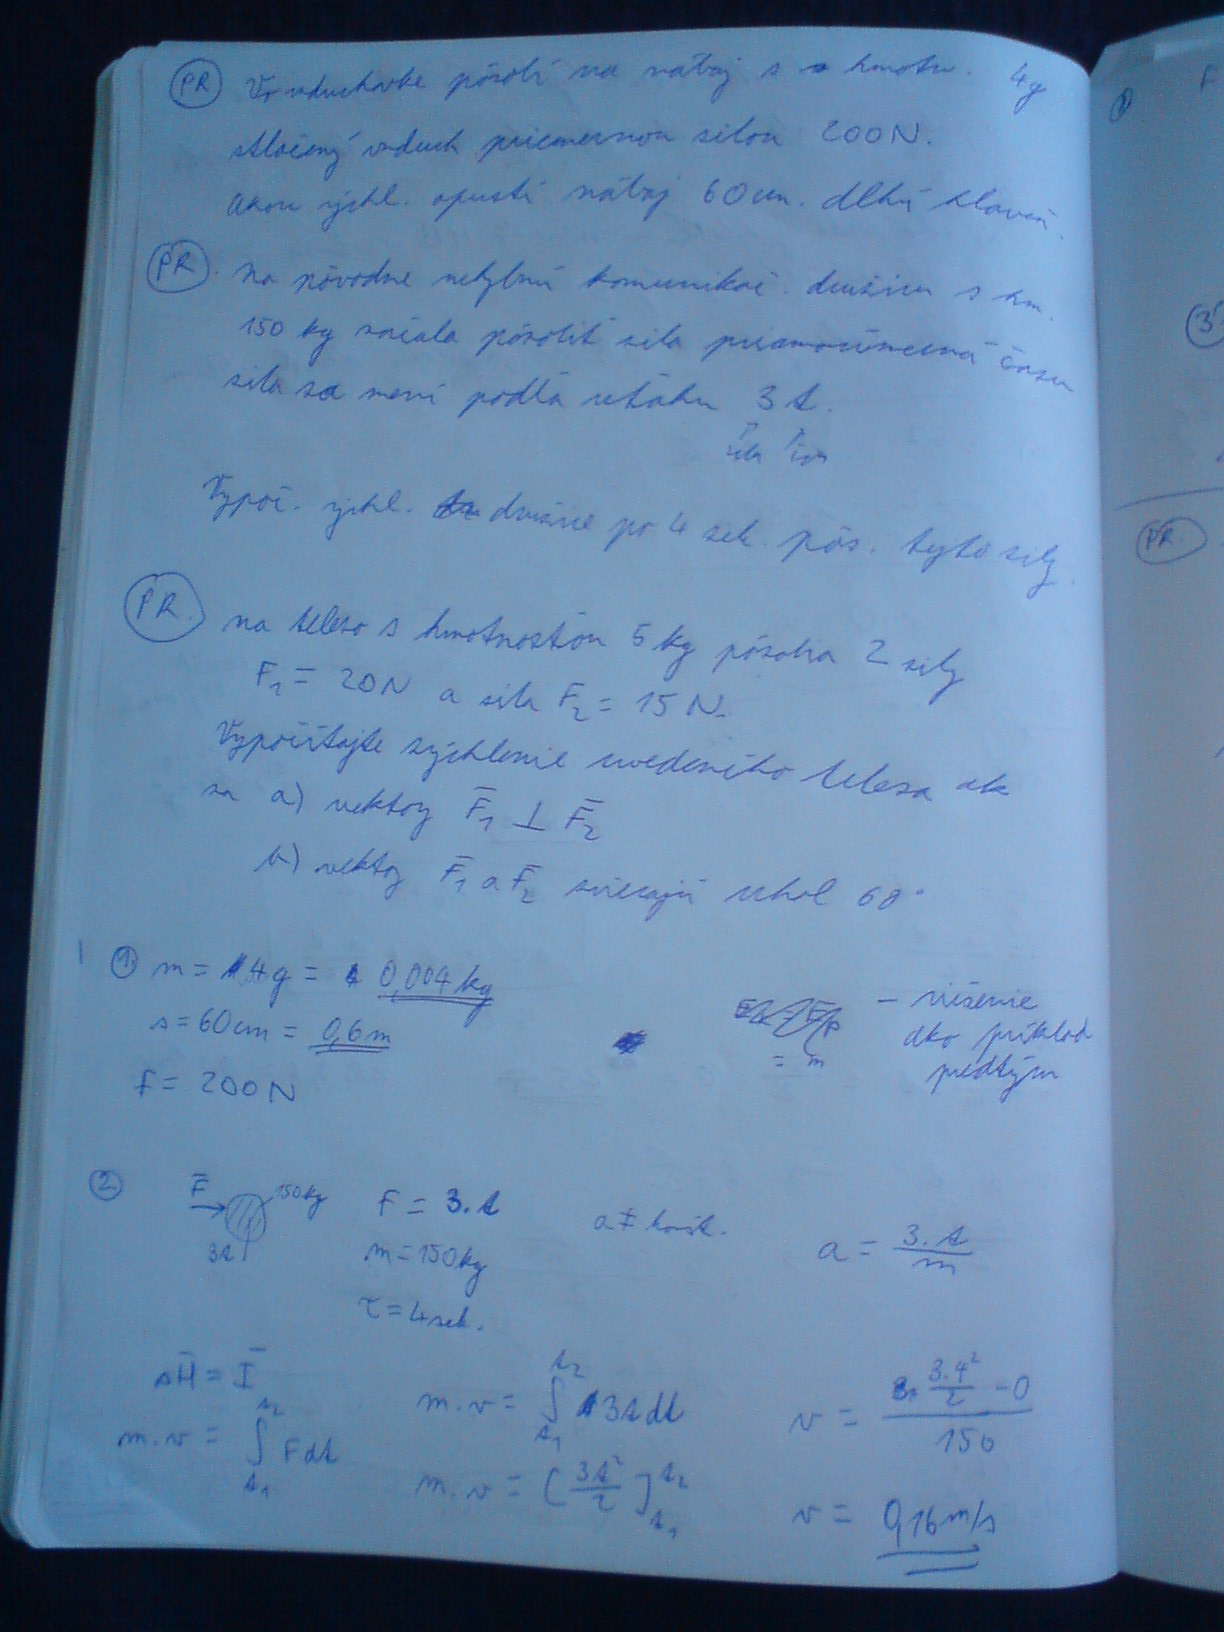 PR Vo vzduchovke pôsobí na náboj s hmotn. 4g
stlačený vzduch priemernou silou 200N.
Akou rýchl. opustí náboj 60cm. dlhú hlaveň.
PR. Na pôvodne nehybnú komunikač. družicu s hm.
150 kg začala pôsobiť sila priamoúmerná času
sila sa mení podľa vzťahu 3t.
sila čas
Vypoč. rýchl. družice po 4 sek. pôs. tejto sily.
PR. na teleso s hmotnosťou 5 kg pôsobia 2 sily
F₁ = 20N a sila F₂ = 15 N.
Vypočítajte zrýchlenie uvedeného telesa ak
sa a) vektory F̄₁ ⊥ F̄₂
b) vektory F̄₁ a F̄₂ zvierajú uhol 60°
1. m = 4g = 0,004 kg
s = 60cm = 0,6m
F = 200N
= m
– riešenie
ako príklad
predtým
2. F̄ 150kg
3t
F = 3.t
m = 150kg
τ = 4sek.
a ≠ konšt.
a = 3.t / m
ΔH̄ = Ī
m.v = ∫ t₁ t₂ F dt
m.v = ∫ t₁ t₂ 3t dt
m.v = [3t²/2] t₁ t₂
v = (3.4²/2 – 0) / 150
v = 0,16 m/s
PR.